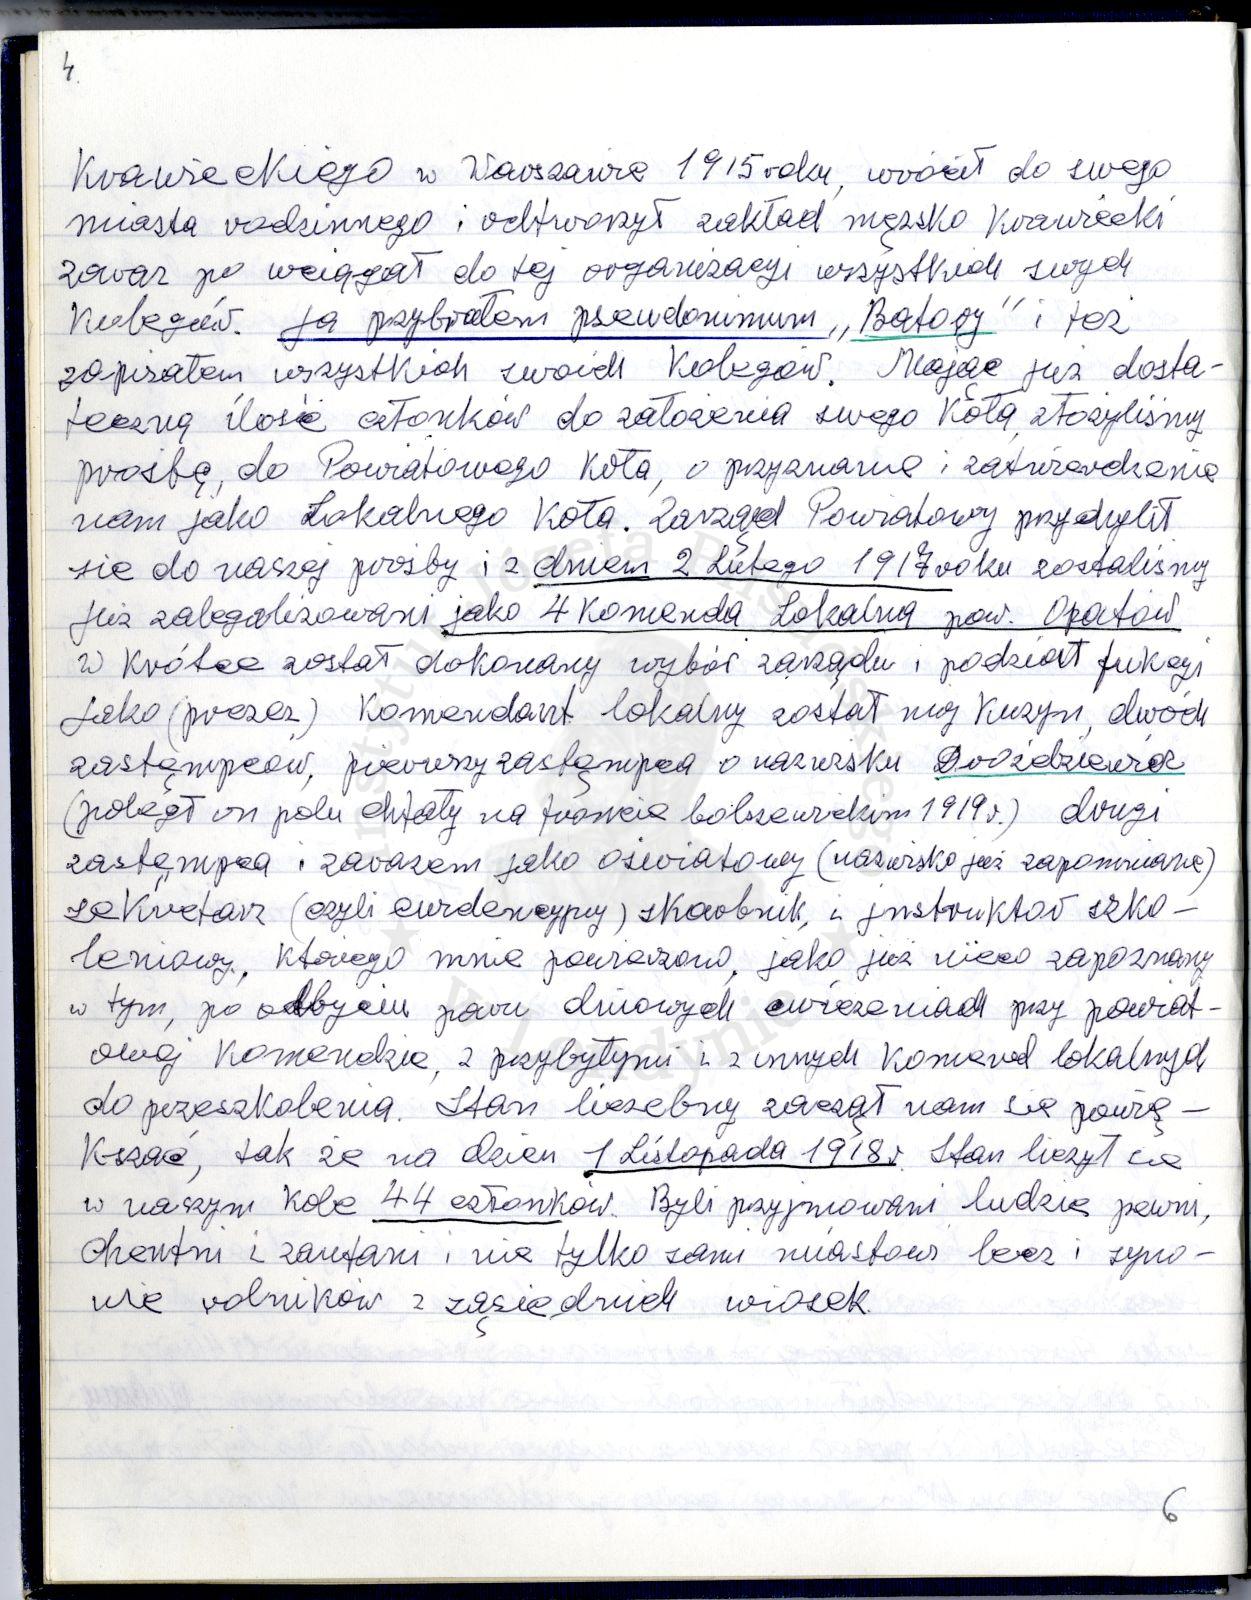 4.
Krawieckiego w Warszawie 1915 roku, wrócił do swego
miasta rodzinnego i odtworzył zakład męzsko Krawiecki
zaraz po wciągał do tej organizacji wszystkich swych
Kolegów. Ja przybrałem pseudonimum „Batory" i też
zapisałem wszystkich swoich Kolegów. Mając już dosta-
teczną ilość członków do założenia swego Koła, złożyliśmy
prośbę, do Powiatowego Koła, o przyznanie i zatwierdzenie
nam jako Lokalnego Koła. Zarząd Powiatowy przychylił
sie do naszej prośby i z dniem 2 Lutego 1917 roku zostaliśmy
już zalegalizowani jako 4 Komenda Lokalna pow. Opatów
W Krótce został dokonany wybór zarządu i podział fukcyi
jako (prezez) Komendant lokalny został mój Kuzyn, dwóch
zastęmpców, pierwszy zastęmpca o nazwisku Droździewicz
(poległ on polu chfały na froncie bolszewickim 1919 r.) drugi
zastęmpca i zarazem jako oświatowy (nazwisko już zapomniane)
seKretarz (czyli ewidencyjny) skarbnik, i jnstruktor szko-
leniowy, którego mnie powierzono, jako już nieco zapoznany
w tym, po odbyciu paru dniowych ćwiczeniach przy powiat-
owej Komendzie, z przybyłymi i z innych Komend lokalnych
do przeszkolenia. Stan liczebny zaczął nam sie powię-
Kszać, tak że na dzien 1 Listopada 1918 r. Stan liczył sie
w naszym Kole 44 członków. Byli przyjmowani ludzie pewni,
Chentni i zaufani i nie tylko sami miastowi lecz i syno-
wie rolników z sąsiednich wiosek.
6
Instytut Józefa Piłsudskiego
w Londynie